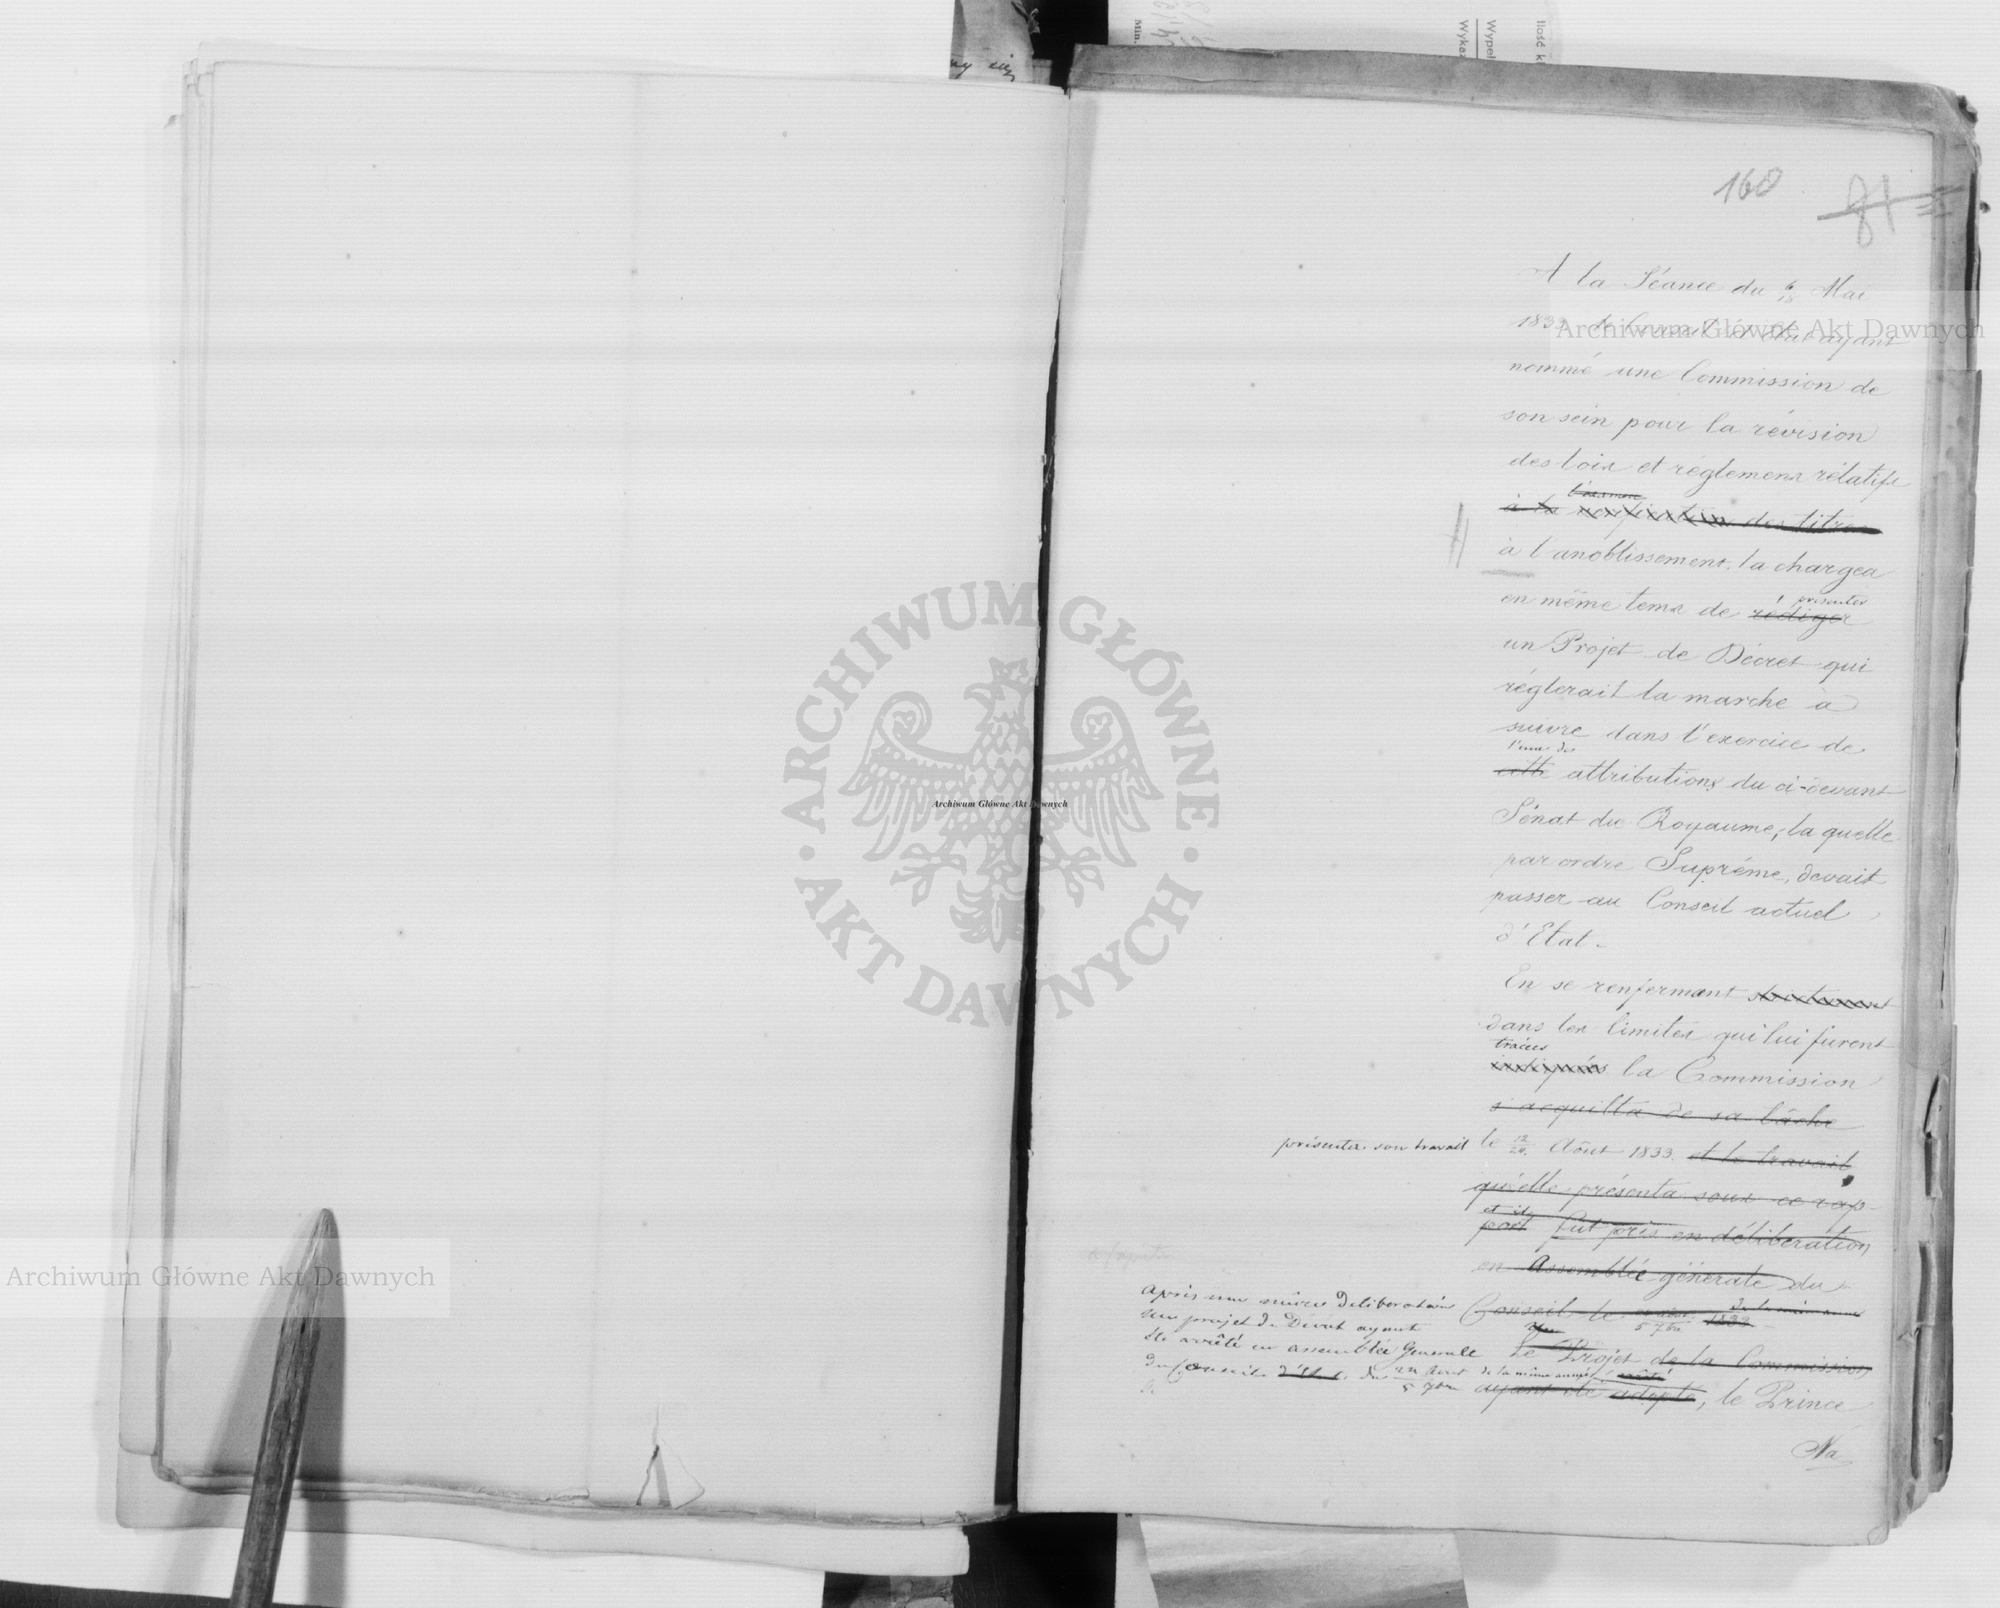 160
81
A la Séance du 6/18 Mai
1833 le Conseil d'Etat ayant
nommé une Commission de
son sein pour la révision
des loix et réglemens rélatifs
l'examen
à la vérification des titres
à l'anoblissement, la chargea
présenter
en même tems de rédiger
un Projet de Décret qui
réglerait la marche à
suivre dans l'exercice de
l'une des
cette attributions du ci-devant
Sénat du Royaume, la quelle
par ordre Suprême, devait
passer au Conseil actuel
d'Etat.
En se renfermant strictement
dans les limites qui lui furent
tracées
indiquées la Commission
s'acquitta de sa tâche
présenta son travail le 12/24 Août 1833. et le travail
qu'elle présenta sous ce rap-
port fut pris en délibération
en Assemblée générale du
Conseil le 5 7bre 1833
de la même année
Le Projet de la Commission
ayant été adopté, le Prince
Na
après une mûre Déliberation
un projet de Décret ayant
été arrêté en assemblée Generale
du Conseil d'Etat du 24 Aout / 5 7bre de la même année
Archiwum Główne Akt Dawnych
ARCHIWUM GŁÓWNE
AKT DAWNYCH
Archiwum Główne Akt Dawnych
Archiwum Główne Akt Dawnych
Min.
Wykaz
Wypeł
Ilość k